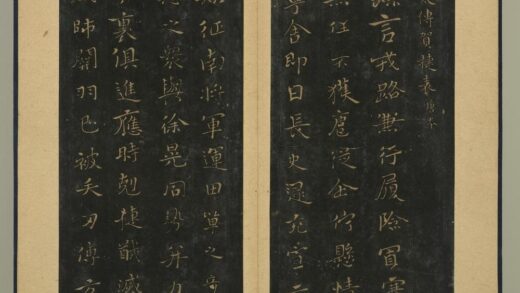 傅賀捷表唐本
繇言戎路兼行履險冒寒
無任不獲扈從企佇懸情
寧舍即日長史逮充宣示
知征南將軍運田單之奇
怒之衆與徐晃同勢并力
表裏俱進應時剋捷馘滅
賊帥關羽已被矢刃傅方